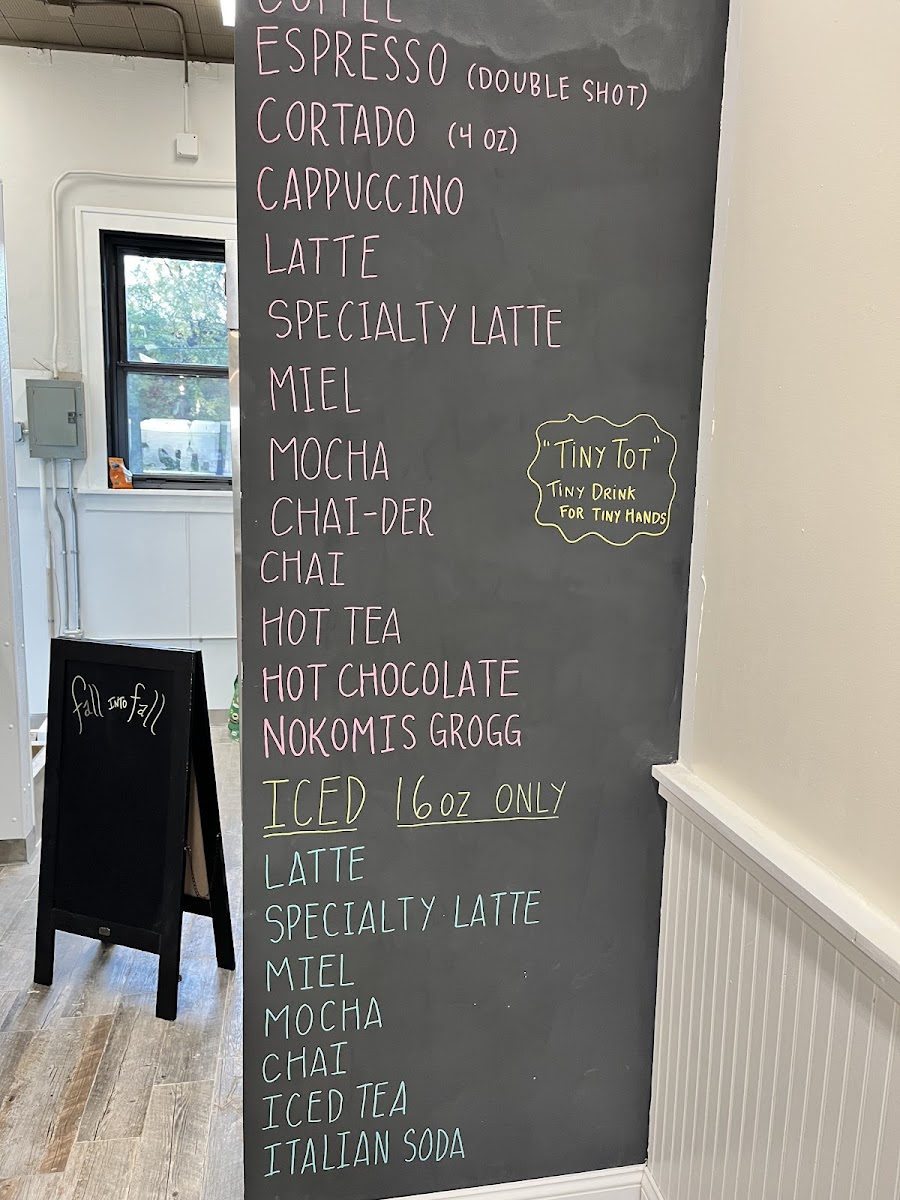 COFFEE
ESPRESSO (DOUBLE SHOT)
CORTADO (4 OZ)
CAPPUCCINO
LATTE
SPECIALTY LATTE
MIEL
MOCHA
CHAI-DER
CHAI
HOT TEA
HOT CHOCOLATE
NOKOMIS GROGG
"TINY TOT"
TINY DRINK
FOR TINY HANDS
ICED 16 OZ ONLY
LATTE
SPECIALTY LATTE
MIEL
MOCHA
CHAI
ICED TEA
ITALIAN SODA
fall INTO fall